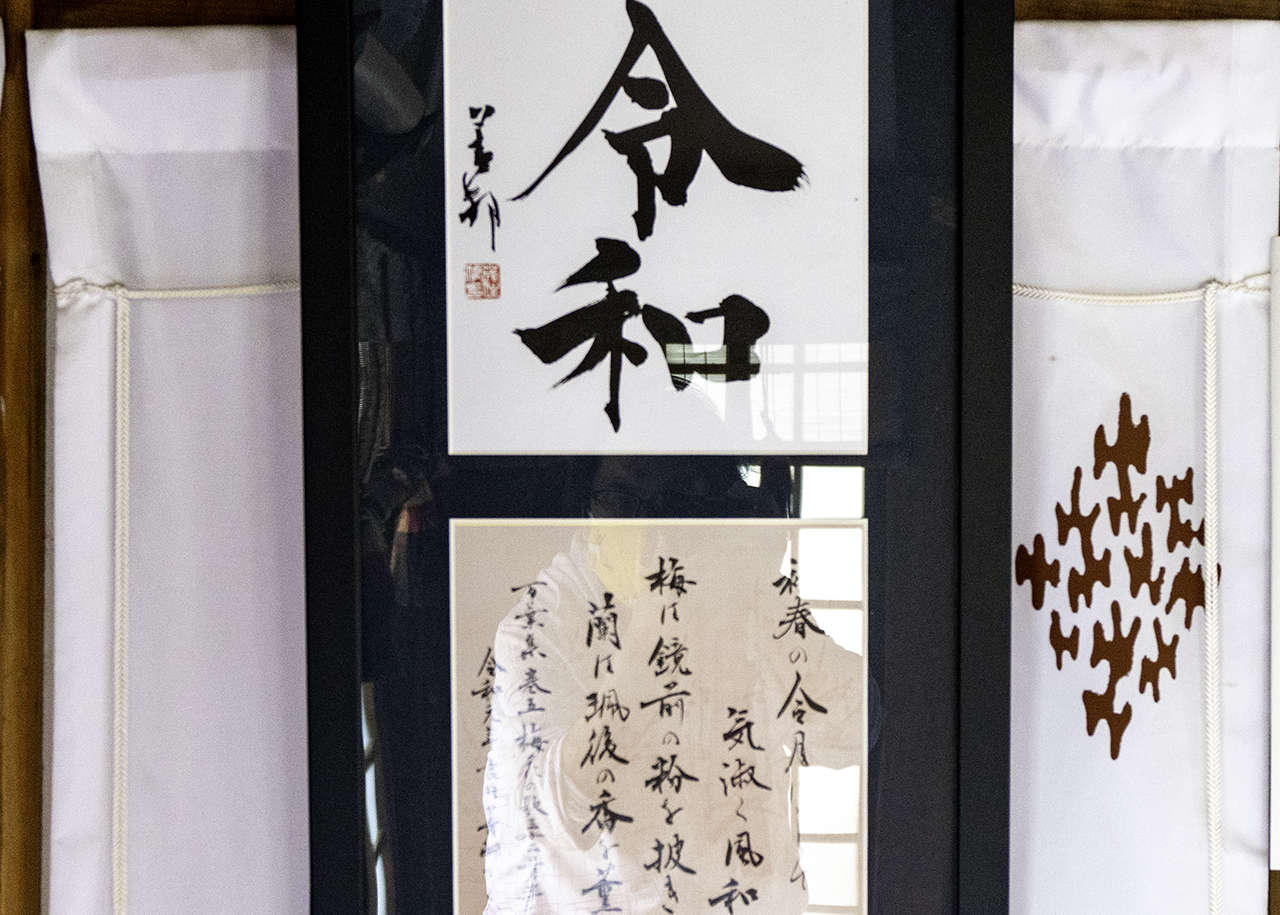 令和
初春の令月
気淑く風和
梅は鏡前の粉を披き
蘭は珮後の香を薫
万葉集巻五梅花の歌三十二首
令和元年